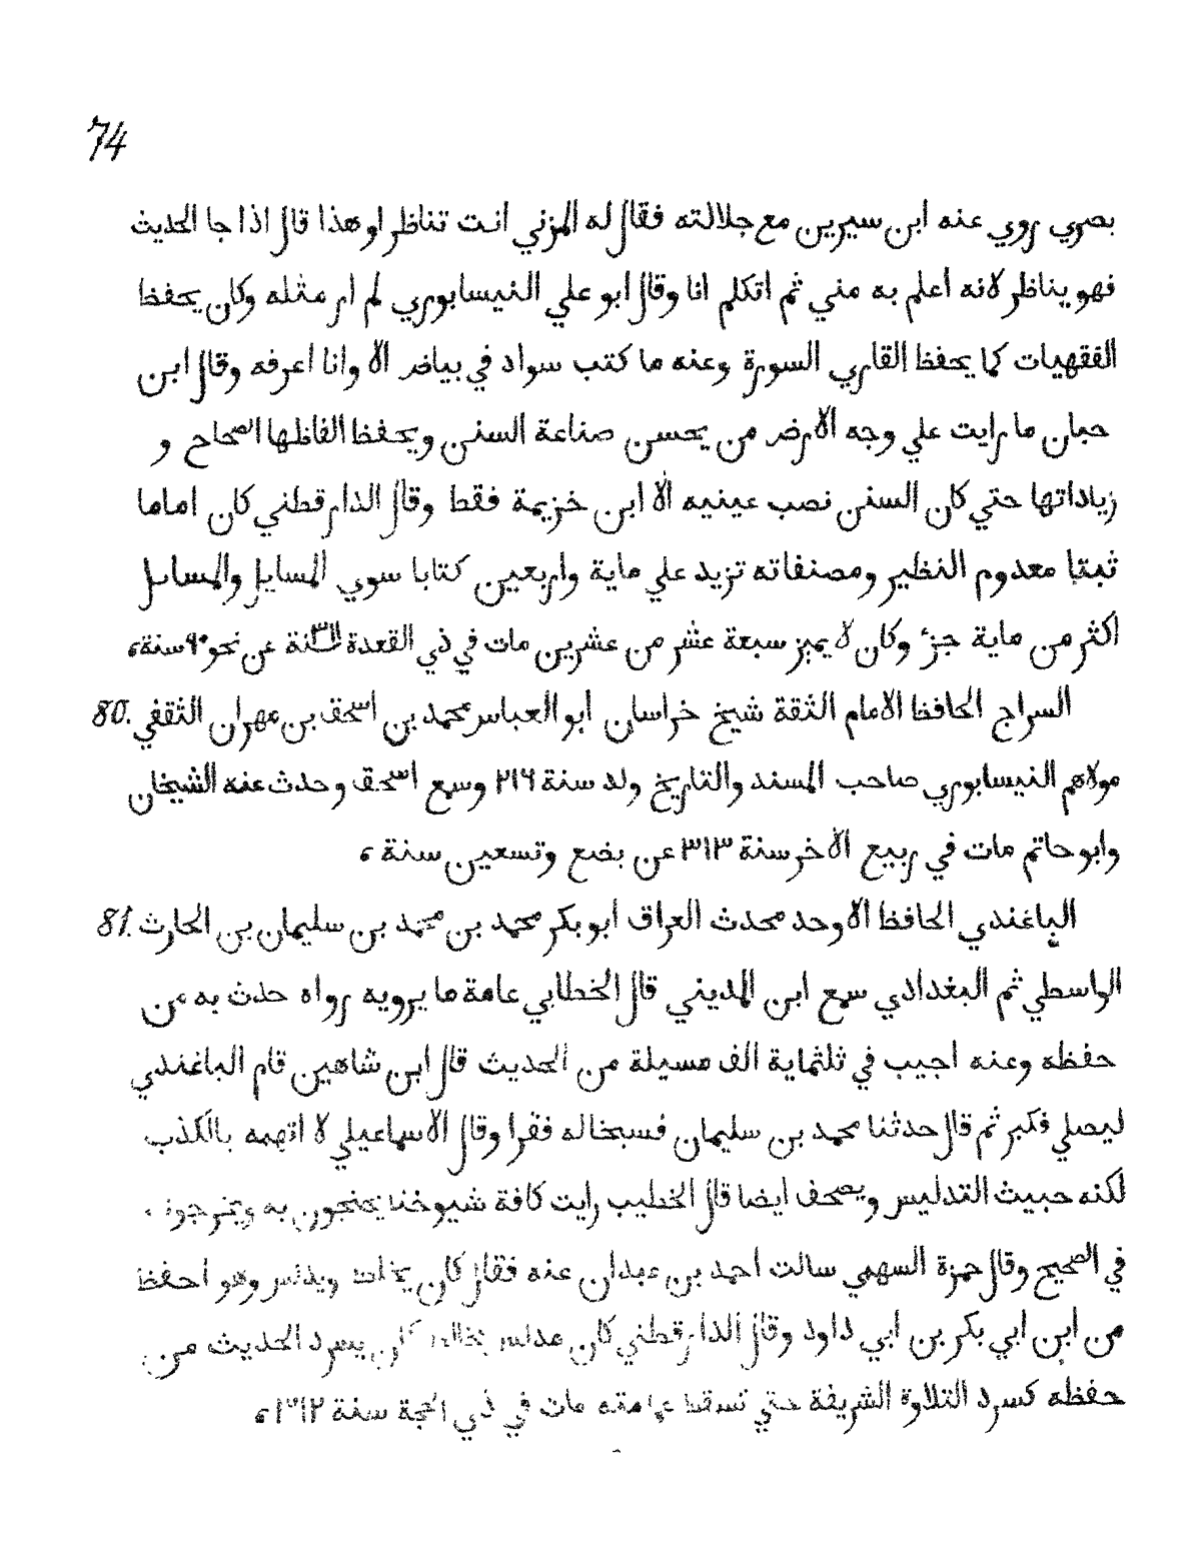 74
بصري روي عنه ابن سيرين مع جلالته فقال له المزني انت تناظر او هذا قال اذا جا الحديث
فهو يناظر لانه اعلم به مني ثم اتكلم انا وقال ابو علي النيسابوري لم ار مثله وكان يحفظ
الفقهيات كما يحفظ القاري السورة وعنه ما كتب سواد في بياض الا وانا اعرفه وقال ابن
حبان ما رايت علي وجه الارض من يحسن صناعة السنن ويحفظ الفاظها الصحاح و
زياداتها حتي كان السنن نصب عينيه الا ابن خزيمة فقط وقال الدارقطني كان اماما
ثبتا معدوم النظير ومصنفاته تزيد علي ماية واربعين كتابا سوي المسايل والمسايل
اكثر من ماية جزء وكان لا يميز سبعة عشر من عشرين مات في ذي القعدة السنة ٣١١ عن نحو ٩٠ سنة ۵
80. السراج الحافظ الامام الثقة شيخ خراسان ابو العباس محمد بن اسحق بن مهران الثقفي
مولاهم النيسابوري صاحب المسند والتاريخ ولد سنة ٢١٦ وسمع اسحق وحدث عنه الشيخان
وابو حاتم مات في ربيع الاخر سنة ٣١٣ عن بضع وتسعين سنة ۵
81. الباغندي الحافظ الاوحد محدث العراق ابو بكر محمد بن محمد بن سليمان بن الحارث
الواسطي ثم البغدادي سمع ابن المديني قال الخطابي عامة ما يرويه رواه حدث به من
حفظه وعنه اجيب في ثلثماية الف مسيلة من الحديث قال ابن شاهين قام الباغندي
ليصلي فكبر ثم قال حدثنا محمد بن سليمان فسبخاله فقرا وقال الاسماعيلي لا اتهمه بالكذب
لكنه حبيث التدليس ويصحف ايضا قال الخطيب رايت كافة شيوخنا يحتجون به ويخرجونه
في الصحيح وقال حمزة السهمي سالت احمد بن عبدان عنه فقال كان يخلط ويدلس وهو احفظ
من ابن ابي بكر بن ابي داود وقال الدارقطني كان مدلس يخالط كان يسرد الحديث من
حفظه كسرد التلاوة الشريفة حتي تسقط عمامته مات في ذي الحجة سنة ٣١٢ ۵